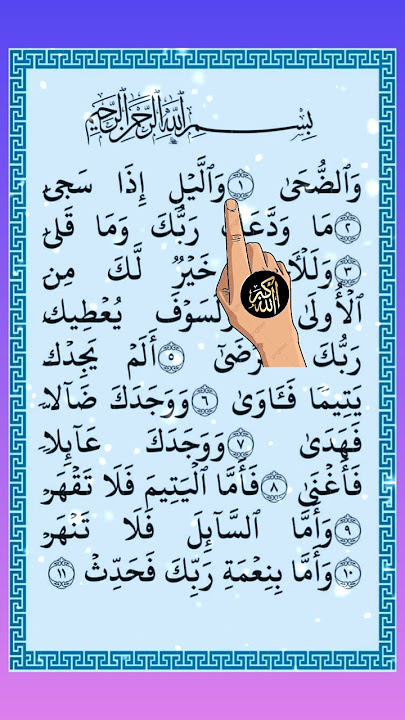 بِسْمِ ٱللَّهِ ٱلرَّحْمَٰنِ ٱلرَّحِيمِ
وَٱلضُّحَىٰ ١ وَٱلَّيْلِ إِذَا سَجَىٰ
٢ مَا وَدَّعَكَ رَبُّكَ وَمَا قَلَىٰ
٣ خَيْرٌ لَّكَ مِنَ
ٱلْأُولَىٰ يُعْطِيكَ
رَبُّكَ ٥ أَلَمْ يَجِدْكَ
يَتِيمًا فَـَٔاوَىٰ ٦ وَوَجَدَكَ ضَآلًّا
فَهَدَىٰ ٧ وَوَجَدَكَ عَآئِلًا
فَأَغْنَىٰ ٨ فَأَمَّا ٱلْيَتِيمَ فَلَا تَقْهَرْ
٩ وَأَمَّا ٱلسَّآئِلَ فَلَا تَنْهَرْ
١٠ وَأَمَّا بِنِعْمَةِ رَبِّكَ فَحَدِّثْ ١١
الله أكبر